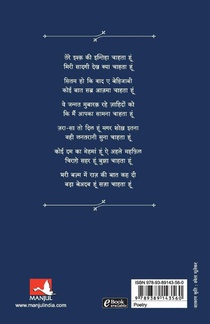 तेरे इश्क़ की इन्तिहा चाहता हूं
मिरी सादगी देख क्या चाहता हूं
सितम हो कि वादा ए बेहिजाबी
कोई बात सब्र आज़मा चाहता हूं
ये जन्नत मुबारक रहे ज़ाहिदों को
कि मैं आपका सामना चाहता हूं
ज़रा-सा तो दिल हूं मगर शोख़ इतना
वही लनतरानी सुना चाहता हूं
कोई दम का मेहमां हूं ऐ अहले महफ़िल
चिराग़े सहर हूं बुझा चाहता हूं
भरी बज़्म में राज़ की बात कह दी
बड़ा बेअदब हूं सज़ा चाहता हूं
MANJUL
www.manjulindia.com
eBook
Available
ISBN 978-93-89143-56-0
9 789389 143560
Poetry